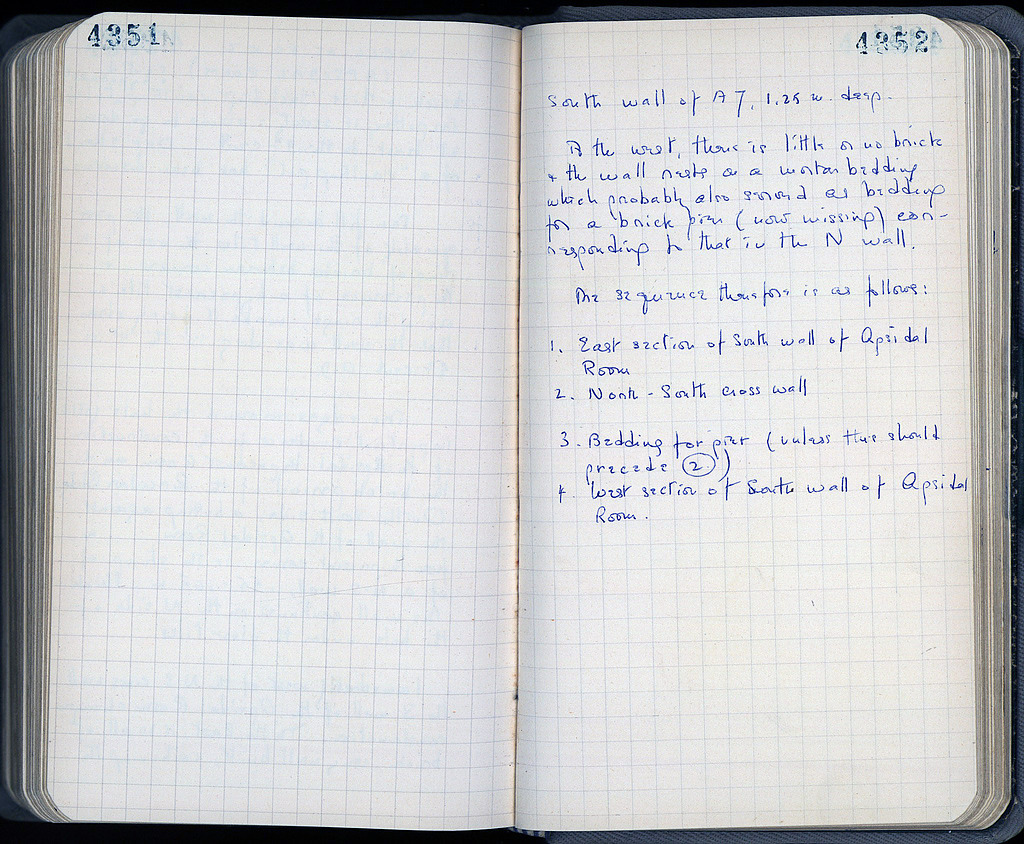 4351
4352
South wall of A 7, 1.25 m. deep.
To the west, there is little or no brick
& the wall rests on a mortar bedding
which probably also served as bedding
for a brick pier (now missing) cor-
responding to that in the N wall.
The sequence therefore is as follows:
1. East section of South wall of Apsidal
Room
2. North - South cross wall
3. Bedding for pier (unless this should
precede 2)
4. West section of South wall of Apsidal
Room.